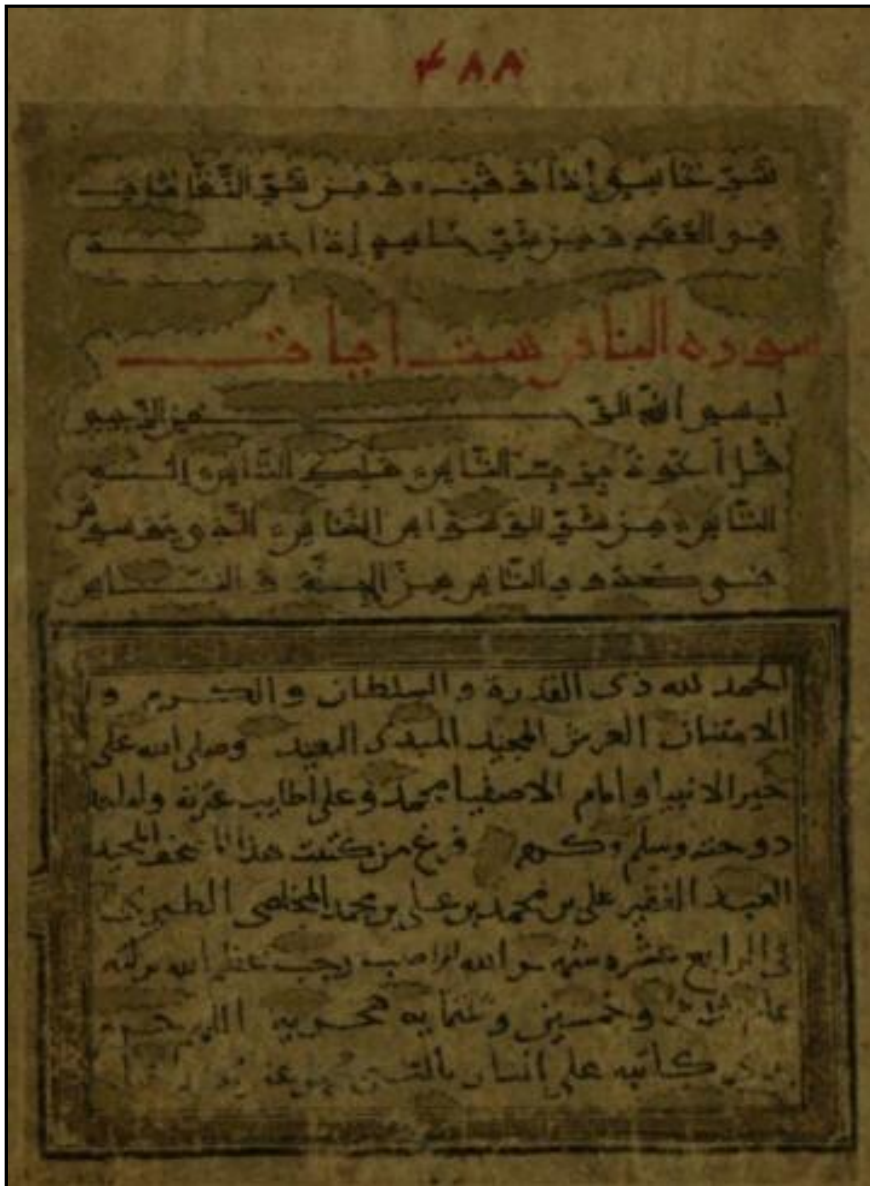 ۴۸۸
شر غاسق إذا وقب ومن شر النفاثات
في العقد ومن شر حاسد إذا حسد
سورة الناس ست ايات
بسم الله الرحمن الرحيم
قل أعوذ برب الناس ملك الناس إله
الناس من شر الوسواس الخناس الذي يوسوس
في صدور الناس من الجنة و الناس
الحمد لله ذى القدرة و السلطان و الكرم و
الامتنان العرش المجيد المبدى المعيد وصلى الله على
خير الانبيا وامام الاصفيا محمد وعلى اطايب عترته
دوحته وسلم وكرم فرغ من كتبت هذا المجيد
العبد الفقير على بن محمد بن على بن محمد المخلصى الطبرى
فى الرابع عشر شهر الله رجب عظم الله بركته
وخمسين هجرية اللهم
كاتبه على